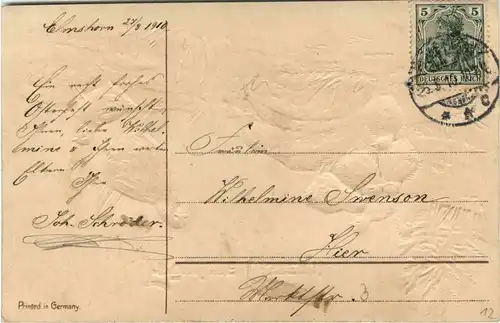 Elmshorn 22/3 1910.
Ein recht frohes
Osterfest wünscht
Ihnen, liebe Wilhel-
mine u Ihren werten
Eltern
Ihr
Joh. Schröder.
Printed in Germany.
5 5
DEUTSCHES REICH
* * c
Fräulein
Wilhelmine Swenson
Hier
Marktstr. 3
12